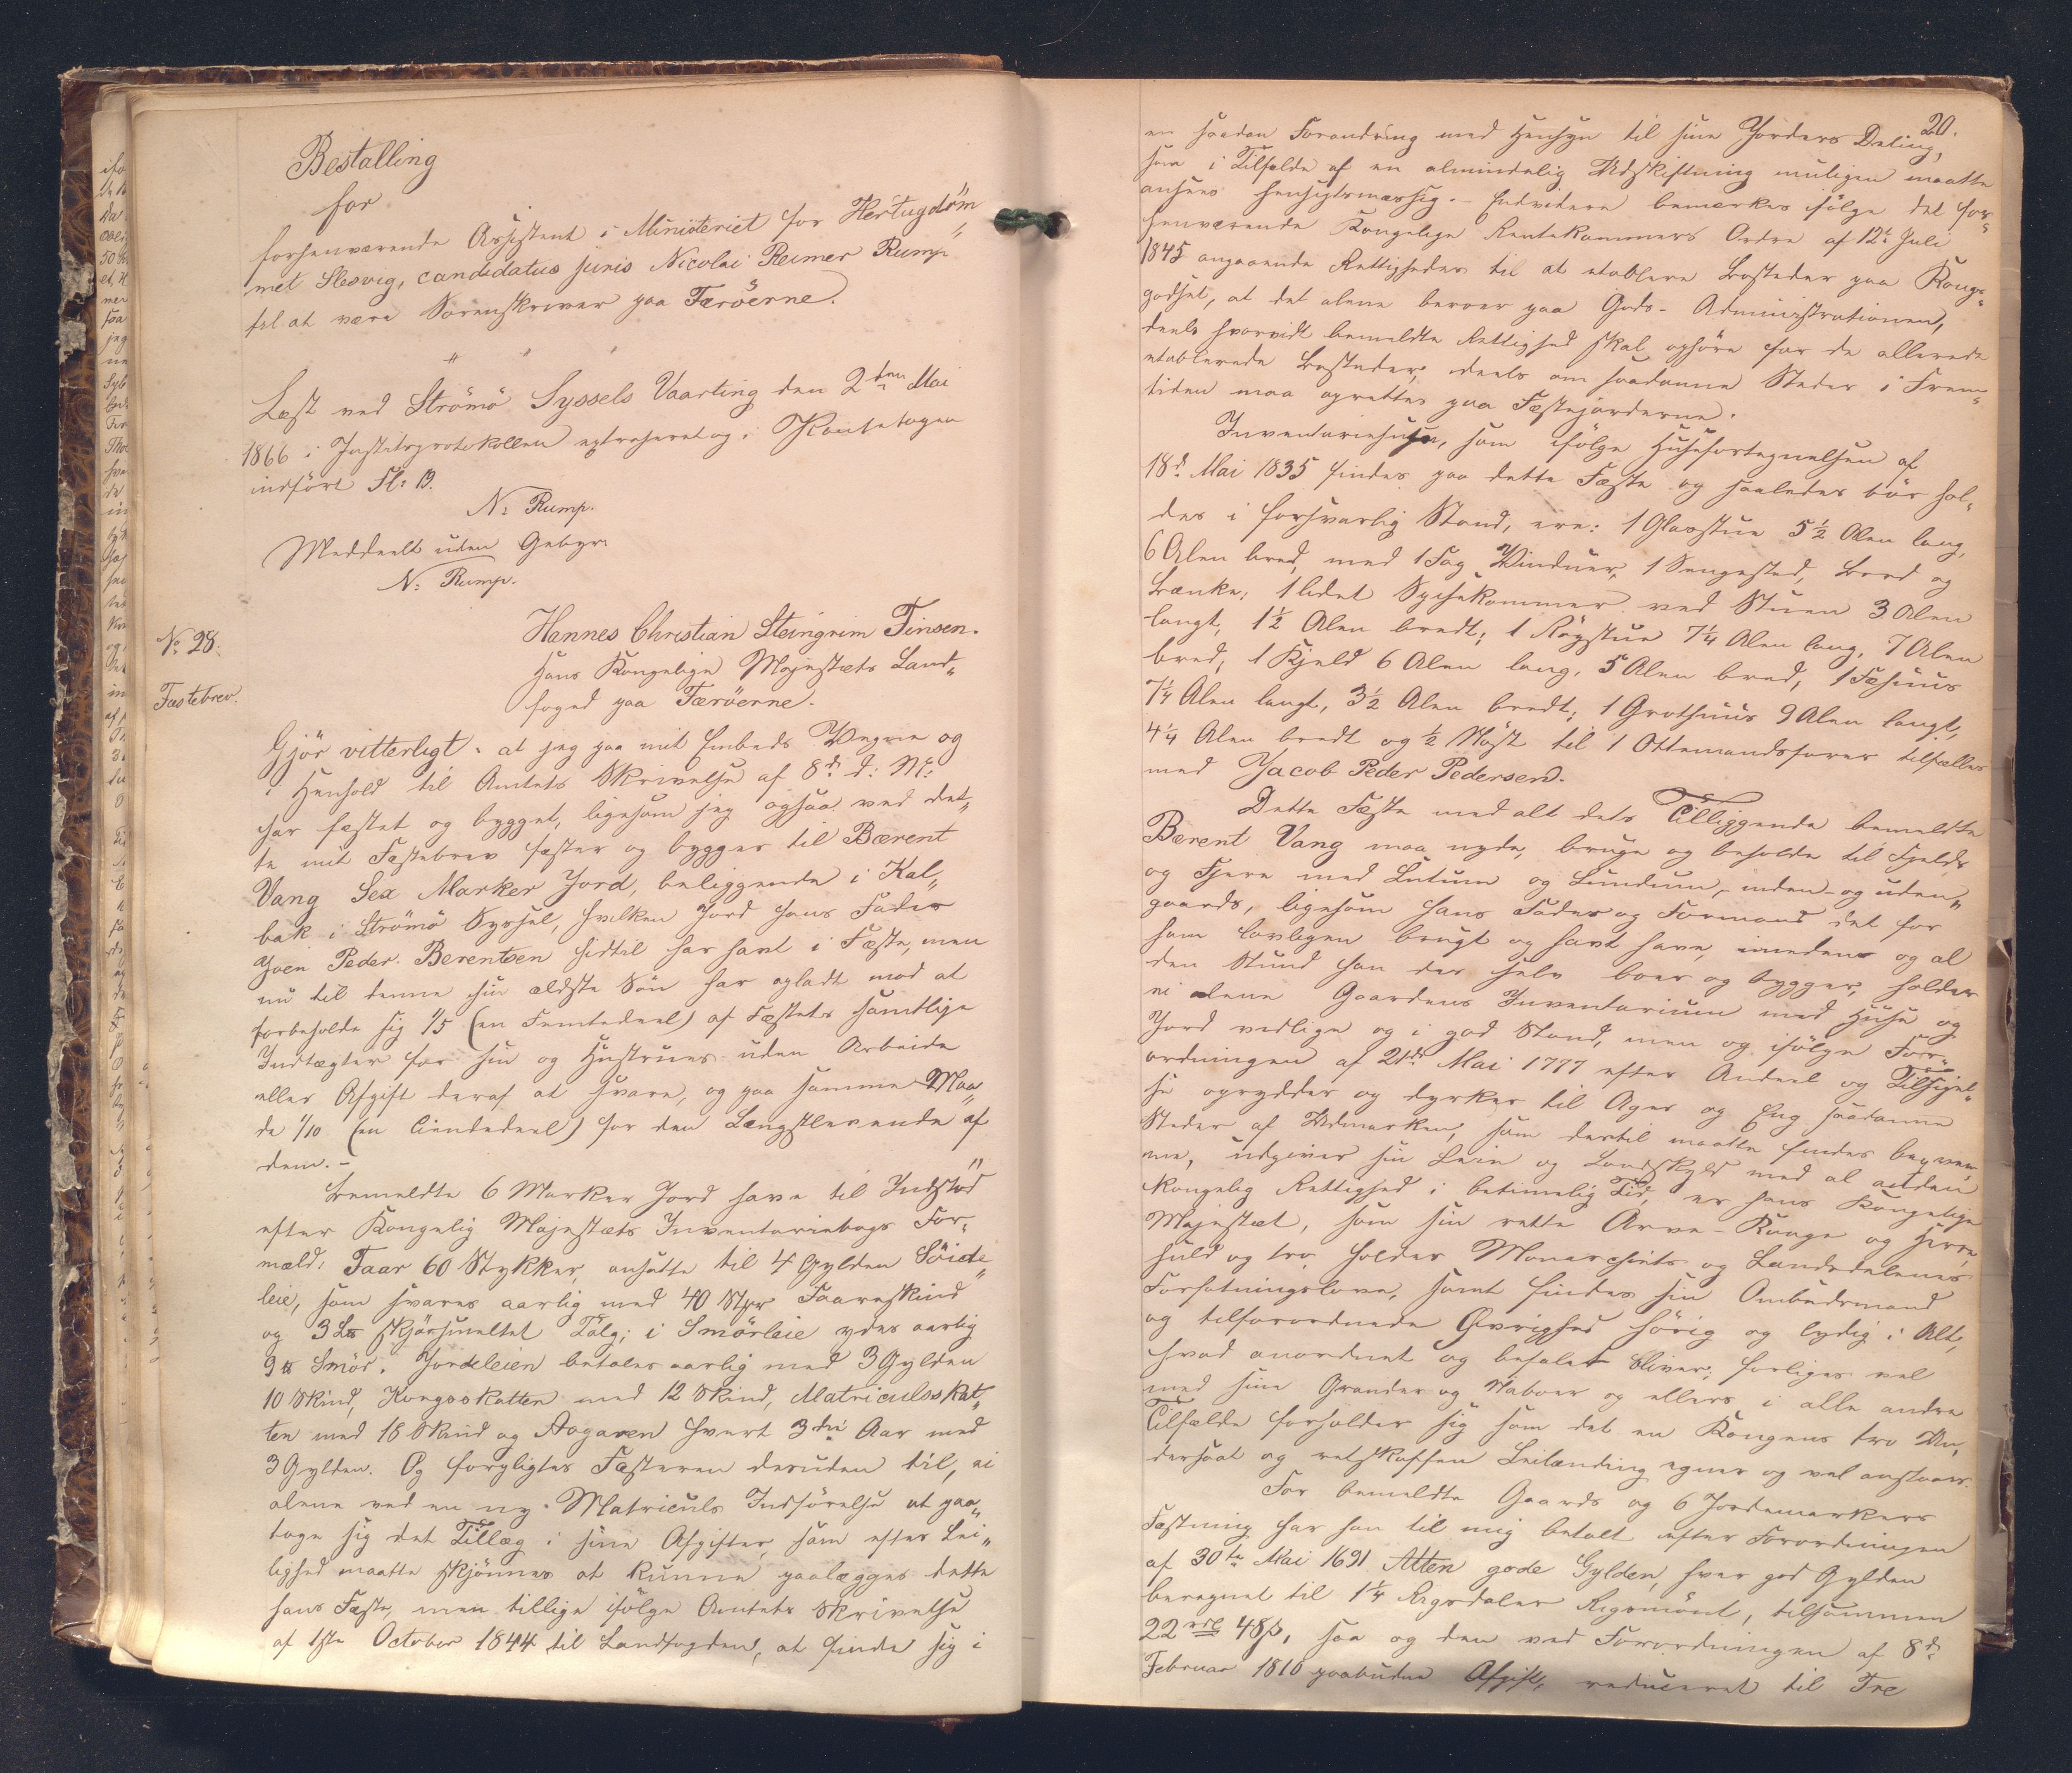 Bestalling
for
forhenværende Assistent i Ministeriet for Hertugdöm„
met Slesvig, candidatus juris Nicolai Reimer Rump
til at være Sorenskriver paa Færöerne.
" " "
Læst ved Strömö Syssels Vaarting den 2den Mai
1866 i Justitsprotokollen extraheret og i Pantebogen
indfört Fl: 19.
N: Rump.
Meddeelt uden Gebyr.
N: Rump.
No 28.
Hannes Christian Steingrim Finsen.
Hans Kongelige Majestæts Land„
foged paa Færöerne.
Fæstebrev.
Gjör vitterligt: at jeg paa mit Embeds Vegne og
i Henhold til Amtets Skrivelse af 8d d: M:
har fæstet og bygget, ligesom jeg ogsaa ved det„
te mit Fæstebrev fæster og bygger til Bærent
Vang Sex Marker Jord, beliggende i Kal„
bak i Strömö Syssel, hvilken Jord hans Fader
Joen Peder Berentsen hidtil har havt i Fæste, men
nu til denne sin ældste Sön har opladt mod at
forbeholde sig 1/5 (en Femtedeel) af Fæstets samtlige
Indtægter for sin og Hustrues uden Arbeide
eller Afgift deraf at svare, og paa samme Maa„
de 1/10 (en Tiendedeel) for den Længstlevende af
dem. -
Bemeldte 6 Marker Jord have til Indstöd
efter Kongelig Majestæts Inventariebogs For„
meld: Faar 60 Stykker, ansatte til 4 Gylden Söide„
leie, som svares aarlig med 40 Stkr Faareskind
og 3 L℔ skjörsmeltet Tälg; i Smörleie ydes aarlig
9 ℔ Smör. Jordeleien betales aarlig med 3 Gylden
10 Skind, Kongsskatten med 12 Skind, Matriculsskat„
ten med 18 Skind og Aogaven hvert 3die Aar med
3 Gylden. Og forpligtes Fæsteren desuden til, ei
alene ved en ny Matriculs Indförelse at paa„
tage sig det Tillæg i sine Afgifter, som efter Lei„
lighed maatte skjönnes at kunne paalægges dette
hans Fæste, men tillige ifölge Amtets Skrivelse
af 1ste October 1844 til Landfogden, at finde sig i
20.
en saadan Forandring med Hensyn til sine Jorders Deling,
som i Tilfælde af en almindelig Udskiftning muligen maatte
ansees hensigtsmæssig. - Endvidere bemærkes ifölge det for„
henværende Kongelige Rentekammers Ordre af 12te Juli
1845 angaaende Rettigheder til at etablere Bosteder paa Kongs„
godset, at det alene beroer paa Gods-Administrationen,
deels hvorvidt bemeldte Rettighed skal ophöre for de allerede
etablerede Bosteder, deels om saadanne Steder i Frem„
tiden maa oprettes paa Fæstejorderne.
Inventariehuse, som ifölge Husefortegnelsen af
18d Mai 1835 findes paa dette Fæste og saaledes bör hol„
des i forsvarlig Stand, ere: 1 Glasstue 5 1/2 Alen lang,
6 Alen bred, med 1 Fag Vinduer, 1 Sengested, Bord og
Bænke, 1 lidet Spisekammer ved Stuen 3 Alen
langt, 1 1/2 Alen bredt; 1 Rögstue 7 1/4 Alen lang, 7 Alen
bred; 1 Kjeld 6 Alen lang, 5 Alen bred; 1 Fæhuus
7 1/4 Alen langt, 3 1/2 Alen bredt; 1 Grothuus 9 Alen langt,
4 1/4 Alen bredt og 1/2 Nöst til 1 Ottemandsfarer tilfælles
med Jacob Peder Pedersen.
Dette Fæste med alt dets Tilliggende bemeldte
Bærent Vang maa nyde, bruge og beholde til Fjelds
og Fjere med Lutum og Lundum, inden- og uden„
gaards, ligesom hans Fader og Formand det for
ham lovligen brugt og havt have, imedens og al
den Stund han der selv boer og bygger, holder
ei alene Gaardens Inventarium med Huse og
Jord vedlige og i god Stand, men og ifölge For„
ordningen af 21de Mai 1777 efter Andeel og Tilhjel„
se oprydder og dyrker til Ager og Eng saadanne
Steder af Udmarken, som dertil maatte findes beqvem„
me, udgiver sin Leie og Landskyld med al anden
Kongelig Rettighed i betimelig Tid, er Hans Kongelige
Majestæt, som sin rette Arve-Konge og Herre,
huld og tro, holder Monarchiets og Landsdelenes
Forfatningslove, samt findes sin Ombudsmand
og tilforordnede Övrighed hörig og lydig i Alt,
hvad anordnet og befalet bliver; forliges vel
med sine Grander og Naboer og ellers i alle andre
Tilfælde forholder sig som det en Kongens tro Un„
dersaat og retskaffen Leilænding egner og vel anstaaer.
For bemeldte Gaards og 6 Jordemarkers
Fæstning har han til mig betalt efter Forordningen
af 30te Mai 1691 Atten gode Gylden, hver god Gylden
beregnet til 1 1/4 Rigsdaler Rigsmönt, tilsammen
22 rdl 48 s, saa og den ved Forordningen af 8d
Februar 1810 paabudne Afgift, reduceret til Tre